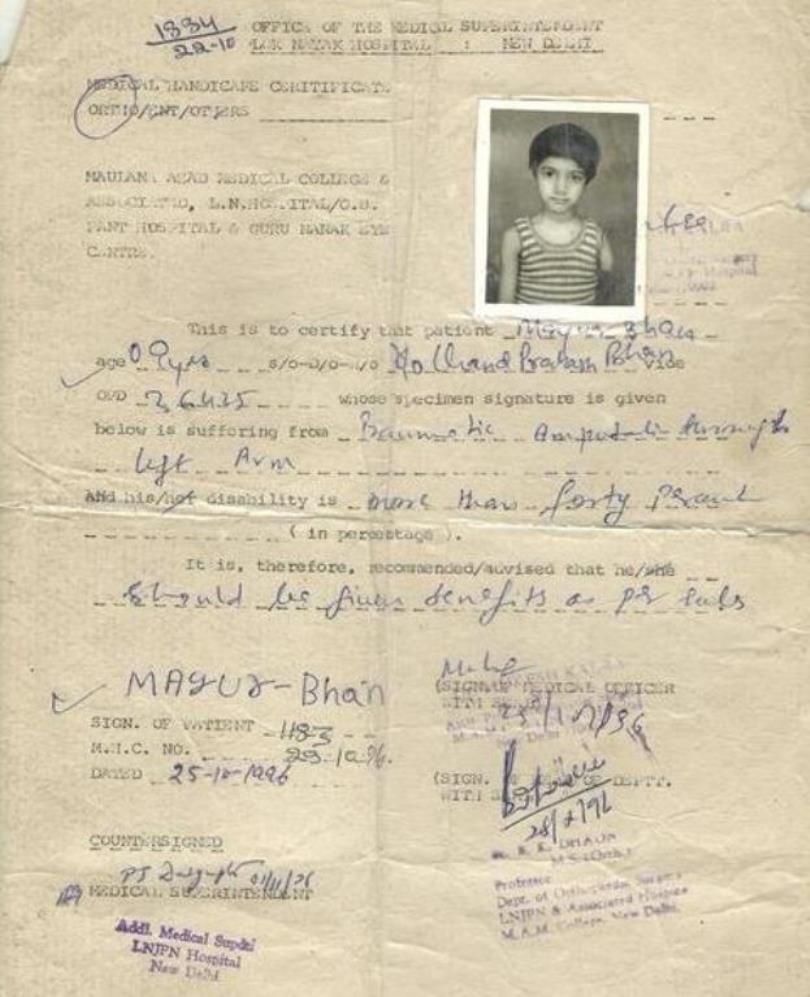 1884
22-10
OFFICE OF THE MEDICAL SUPERINTENDENT
LOK NAYAK HOSPITAL : NEW DELHI
MEDICAL HANDICAPE CERITIFICATE
ORTHO/ENT/OTHERS
MAULANA AZAD MEDICAL COLLEGE &
ASSOCIATED, L.N.HOSPITAL/G.B.
PANT HOSPITAL & GURU NANAK EYE
CENTRE.
This is to certify that patient Mayur Bhan
age 09yrs S/O-D/O-W/O Chand Prakash Bhan vide
OPD 26435 whose specimen signature is given
below is suffering from Traumatic Amputation through
left Arm
And his/her disability is more than forty percent
( in percentage ).
It is, therefore, recommended/advised that he/she
should be given benefits as per rules
MAyUr-Bhan
SIGN. OF PATIENT
M.H.C. NO. 1183
29-10-96.
DATED 25-10-1996
(SIGN. OF MEDICAL OFFICER
WITH
25/10/96
(SIGN. OF HEAD OF DEPTT.
WITH
COUNTERSIGNED
MEDICAL SUPERINTENDENT
Addl. Medical Supdtt
LNJPN Hospital
New Delhi
M.S. (Ortho)
Professor
Dept. of Orthopaedic Surgery
LNJPN & Associated Hospitals
M.A.M. College, New Delhi.